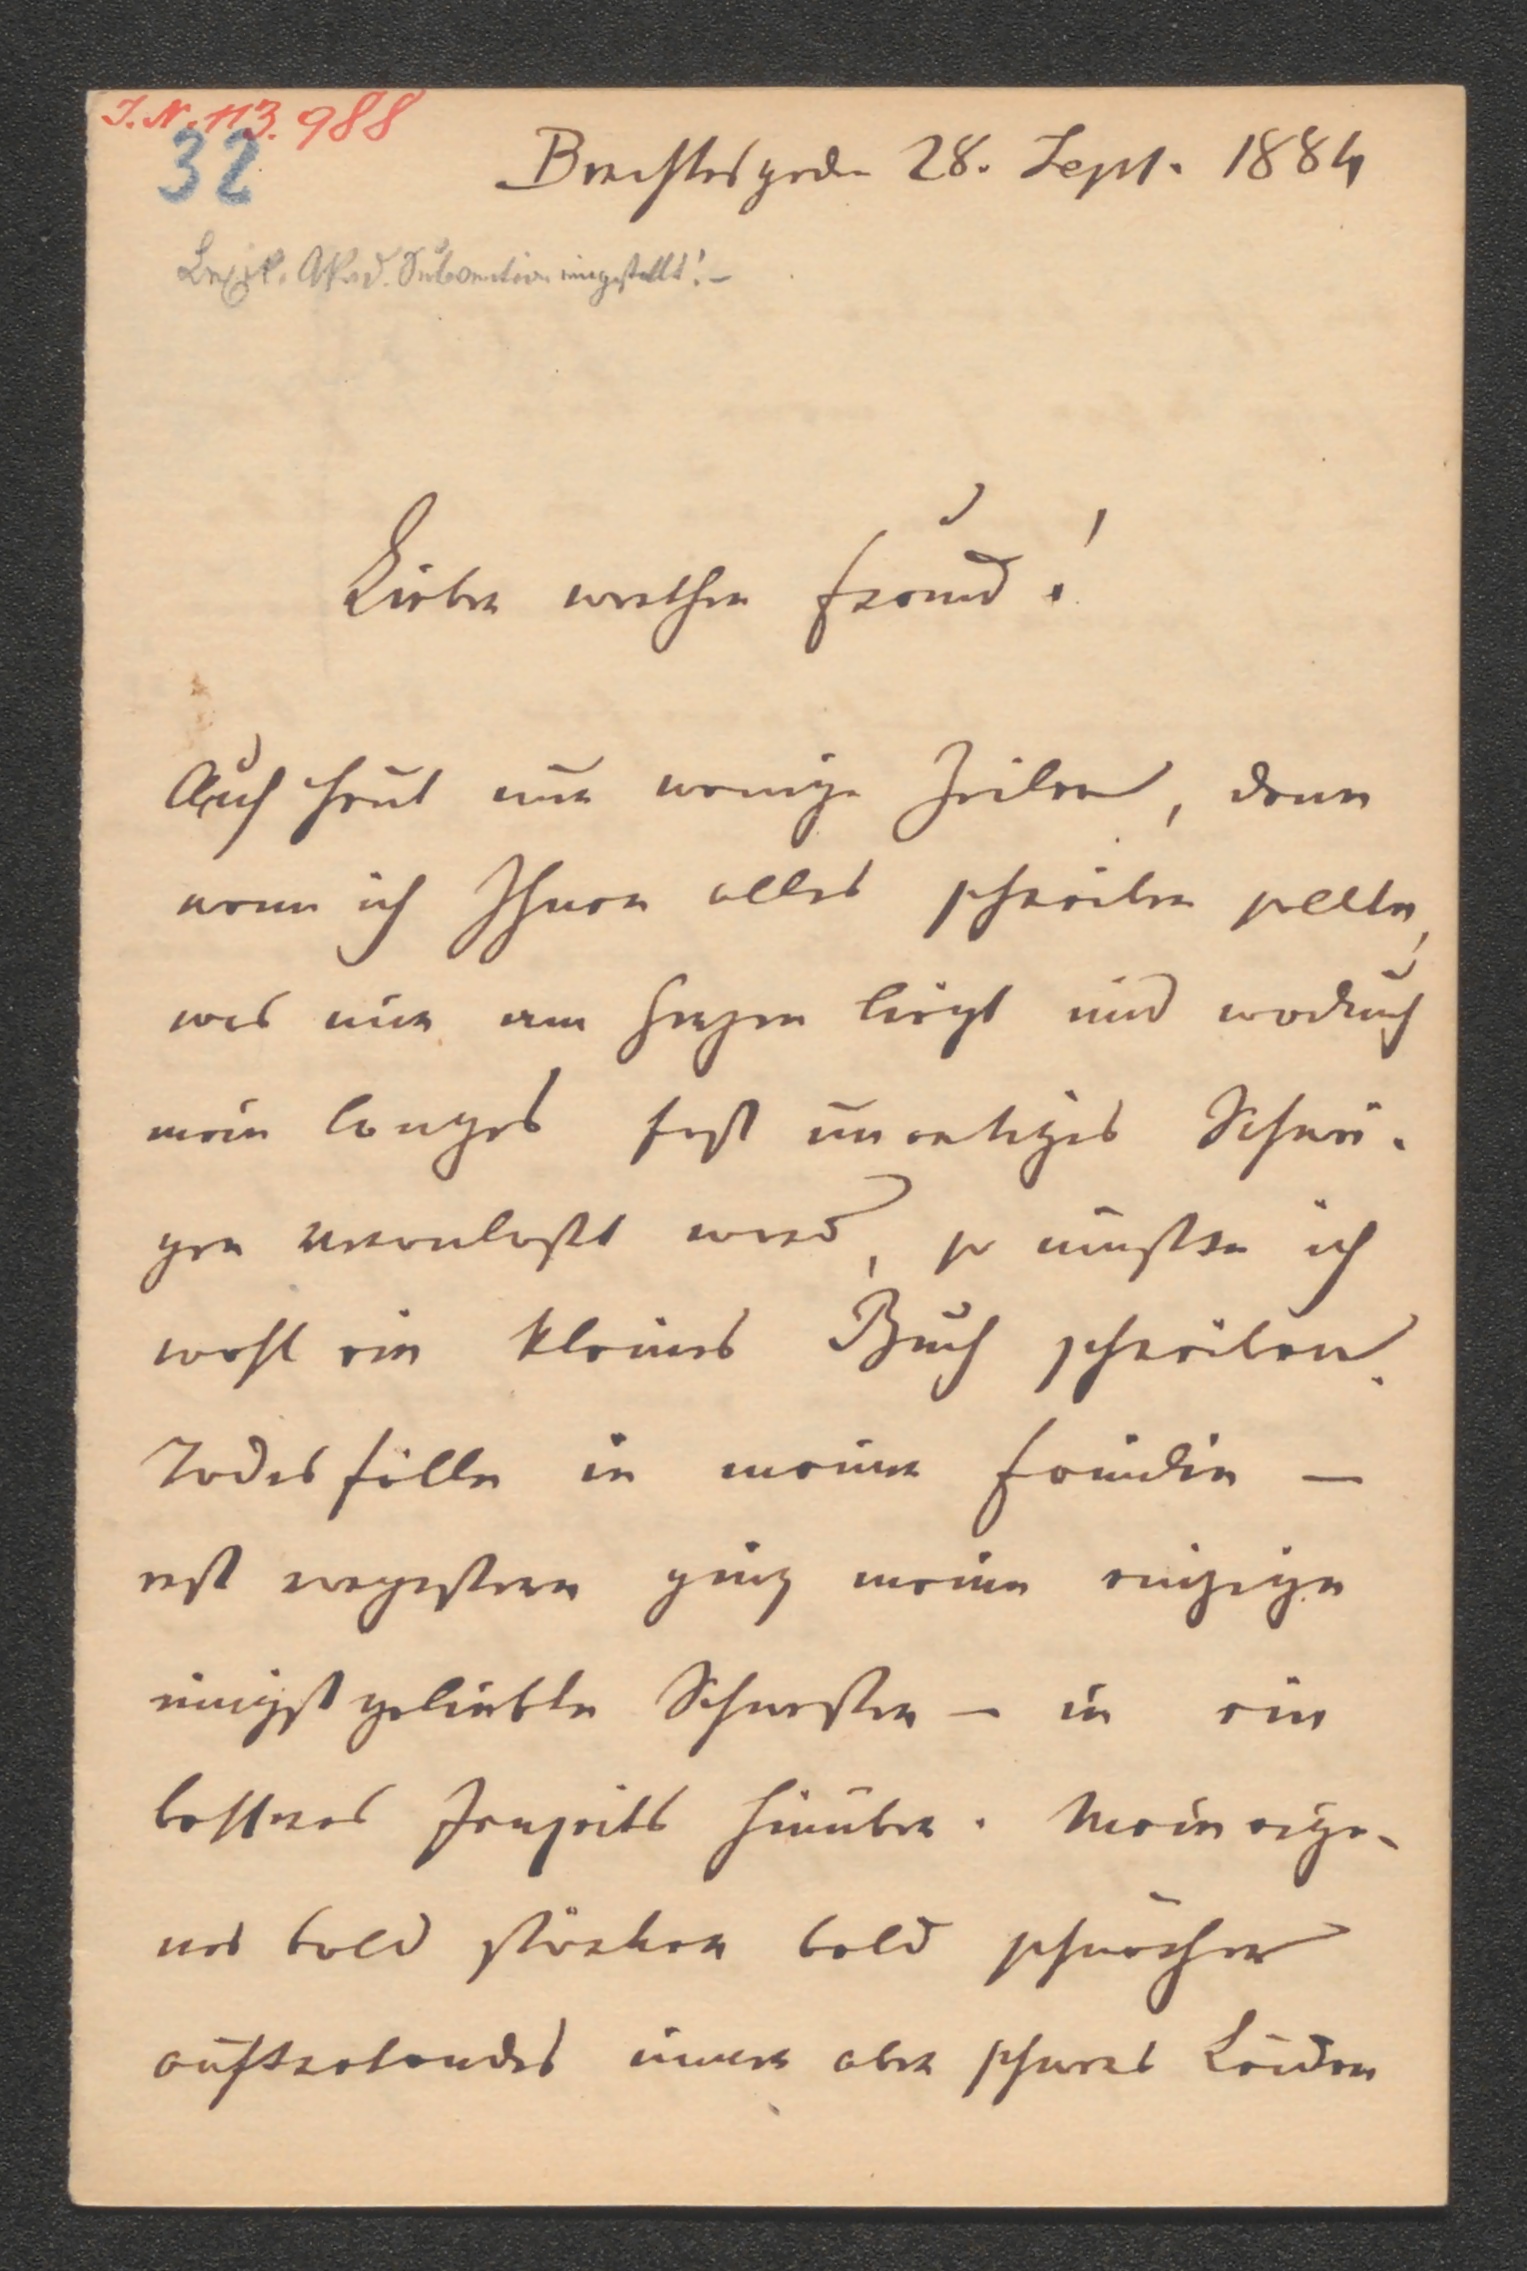 I.N. 113.988
32
Berchtesgaden 28. Sept. 1884
Lexik. Akad. Subvention eingestellt! –
Lieber werther Freund!
Auch heut nur wenige Zeilen, denn
wenn ich Ihnen alles schreiben sollte,
was mir am Herzen liegt und wodurch
mein langes fast unartiges Schwei-
gen veranlaßt ward, so müßte ich
wohl ein kleines Buch schreiben.
Todesfälle in meiner Familie –
erst vorgestern ging meine einzige
innigst geliebte Schwester – in ein
besseres Jenseits hinüber. Mein eige-
nes bald stärker bald schwächer
auftretendes immer aber schweres Leiden